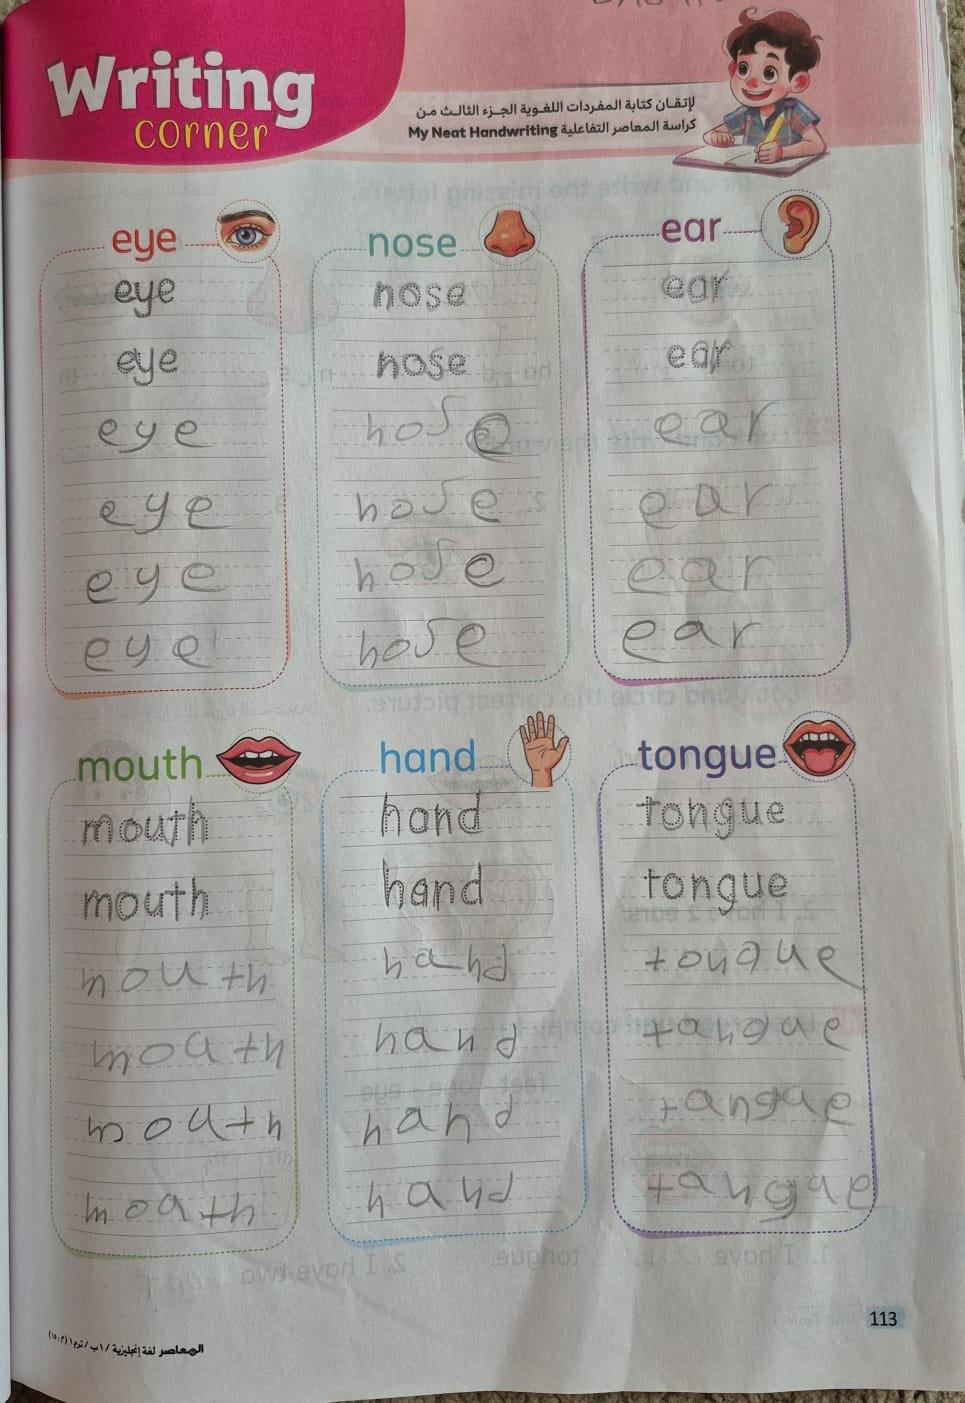 Writing
corner
لإتقان كتابة المفردات اللغوية الجزء الثالث من
كراسة المعاصر التفاعلية My Neat Handwriting
eye
eye
eye
eye
eye
eye
eye
nose
nose
nose
hose
hose
hose
hose
ear
ear
ear
ear
ear
ear
ear
mouth
mouth
mouth
mouth
moath
mouth
moath
hand
hand
hand
hand
hand
hand
hand
tongue
tongue
tongue
tongue
tangue
tangue
tangue
113
المعاصر لغة إنجليزية / ١ب / ترم ١ (م: ١٥)